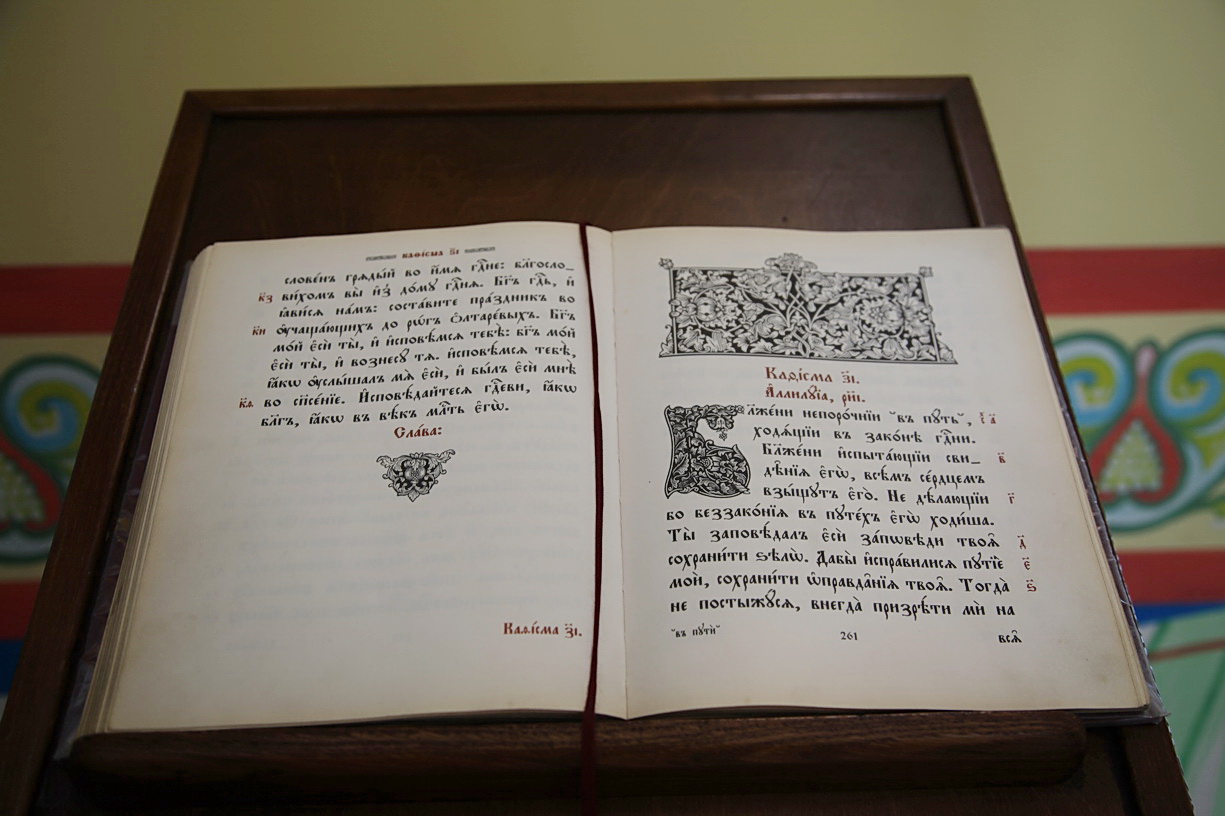 каѳі́сма з҃і
слове́нъ гряды́й во и҆́мѧ гдⷭ҇не: бл҃госло_
к҃з ви́хомъ вы̀ и҆з̾ до́му гдⷭ҇нѧ. Бг҃ъ гдⷭ҇ь, и҆
ꙗ҆ви́сѧ на́мъ: соста́вите пра́здникъ во
к҃и ᲂу҆чаща́ющихъ до рѡ́гъ ѻ҆лтаре́выхъ. Бг҃ъ
мо́й є҆сѝ ты̀, и҆ и҆сповѣ́мсѧ тебѣ̀: бг҃ъ мо́й
є҆сѝ ты̀, и҆ вознесꙋ̀ тѧ̀. и҆сповѣ́мсѧ тебѣ̀,
ꙗ҆́кѡ ᲂу҆слы́шалъ мѧ̀ є҆сѝ, и҆ бы́лъ є҆сѝ мнѣ̀
к҃ѳ во сп҃се́нїе. И҆сповѣ́дайтесѧ гдⷭ҇еви, ꙗ҆́кѡ
бл҃гъ, ꙗ҆́кѡ въ вѣ́къ млⷭ҇ть є҆гѡ̀.
Сла́ва:
Каѳі́сма з҃і.
Каѳі́сма з҃і.
А҆ллилꙋ́їа, рн҃і.
Бл҃же́ни непоро́чнїи ˘въ пꙋ́ть˘, х҃ а҃
ходѧ́щїи въ зако́нѣ гдⷭ҇ни.
Бл҃же́ни и҆спыта́ющїи сви_ в҃
дѣ̑нїѧ є҆гѡ̀, всѣ́мъ се́рдцемъ
взы́щꙋтъ є҆го̀. Не дѣ́лающїи г҃
бо беззако́нїѧ въ пꙋте́хъ є҆гѡ̀ ходи́ша.
Ты̀ заповѣ́далъ є҆сѝ за́пѡвѣди твоѧ̑ д҃
сохрани́ти ѕѣлѡ̀. Дабы̀ и҆спра́вилисѧ пꙋтїѐ є҃
моѝ, сохрани́ти ѡ҆правда̑нїѧ твоѧ̑. Тогда̀ ѕ҃
не постыжꙋ́сѧ, внегда̀ призрѣ́ти мѝ на
˘въ пꙋтѝ˘ 261 всѧ̑